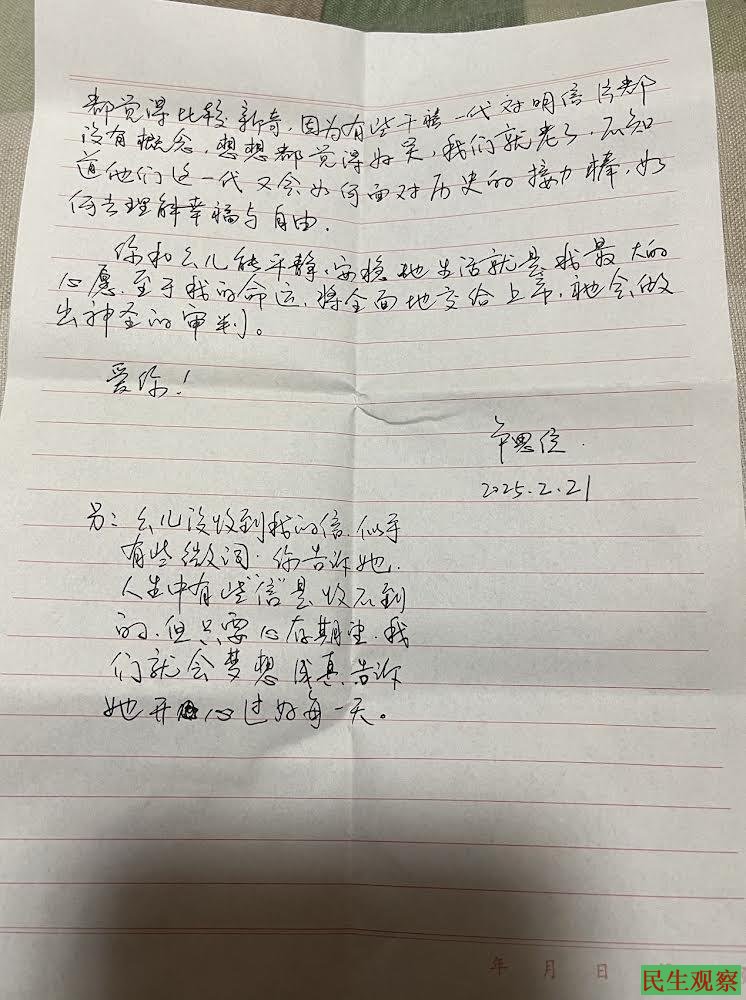 都觉得比较新奇，因为有些千禧一代对明信片都
没有概念，想想都觉得好笑，我们就老了，不知
道他们这一代又会如何面对历史的接力棒，如
何去理解幸福与自由．
你和幺儿能平静，安稳地生活就是我最大的
心愿，至于我的命运，将全面地交给上帝，祂会做
出神圣的审判。
爱你！
思信．
2025.2.21
另：幺儿没收到我的信，似乎
有些微词．你告诉她．
人生中有些“信”是收不到
的，但只要心存期望，我
们就会梦想成真，告诉
她开心过好每一天。
年 月 日
民生观察